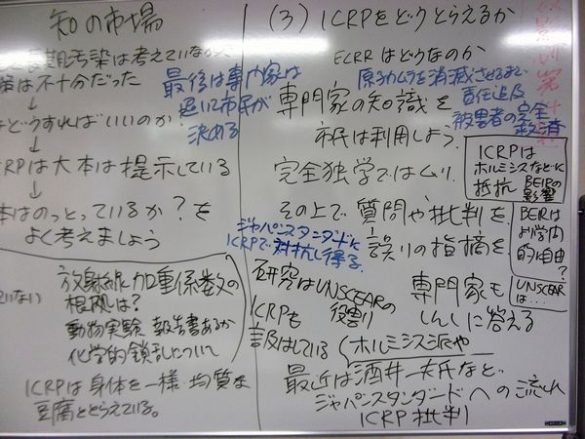 知の市場
長期汚染は考えていなかった
策は不十分だった
↓
はどうすればいいのか
CRPは大本は提示している
↓
本はのっとっているか？を
よく考えましょう
最後は専門家は
退いて市民が
決める
放射線加重係数の
根拠は？
動物実験 報告書あるか
化学的鎖
について
ていない
ICRPは身体を一様・均質な
豆腐ととらえている。
(3) ICRPをどうとらえるか
ECRRはどうなのか
原子力ムラを消滅させるまで
責任追及
被害者の完全
救済
専門家の知識を
市民は利用しよう。
完全独学ではムリ
その上で質問や批判を
誤りの指摘を
ジャパンスタンダードに
ICRPで対抗し得る。
ICRPは
ホルミシスなどに
抵抗 BEIRの
影響
BEIRは
お学内
的自由?
UNSCEAR
は....
研究はUNSCEARの
役割り
ICRPも
言及はしている
専門家も
しんしに答える
ホルミシス派や
最近は酒井一夫氏など
ジャパンスタンダードへの流れ
ICRP批判